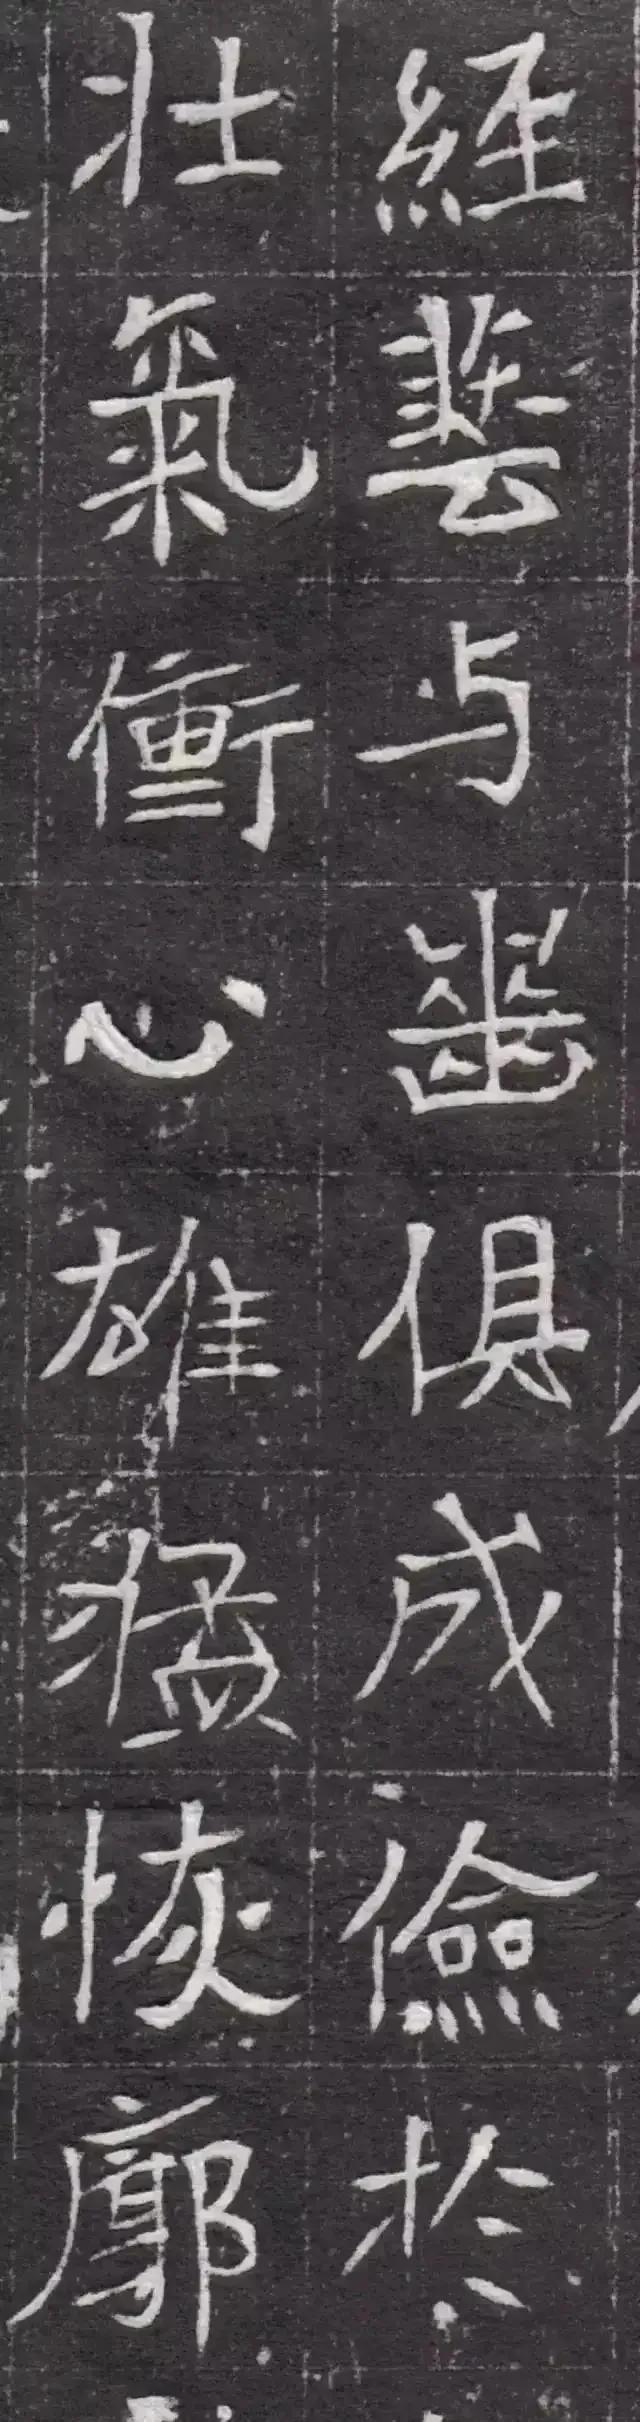 經藝与齒俱成儉於
壯氣衝心雄猛恢廓